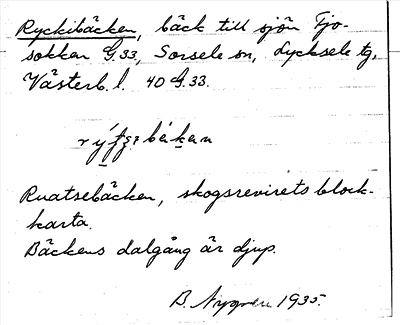 Ryckibäcken, bäck till sjön Tjo-
sokken G.33, Sorsele sn, Lycksele tg,
Västerb. l. 40 G.33.
bäḱen
Ruatsebäcken, skogsrevirets block-
karta.
Bäckens dalgång är djup.
B. Nygren 1935.